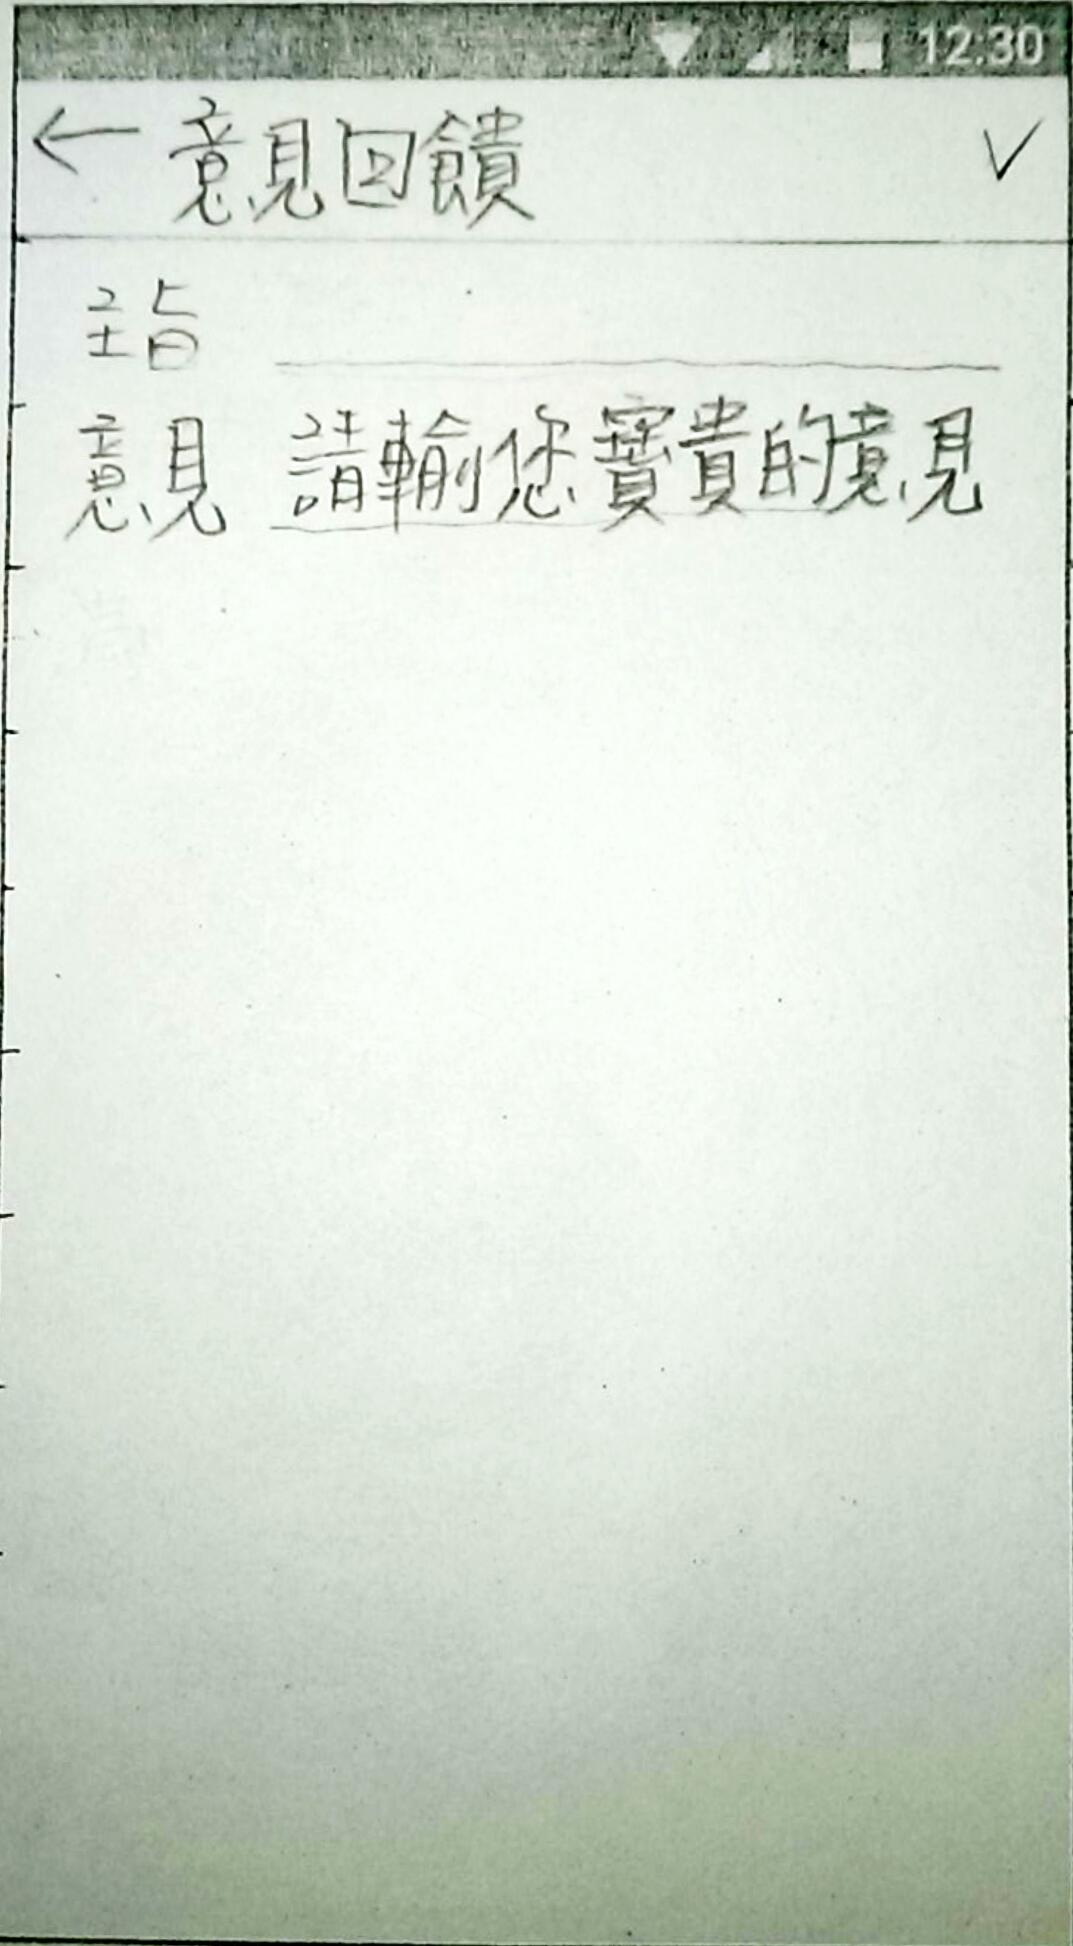 12:30
← 意見回饋 ✓
主旨
意見 請輸您寶貴的意見